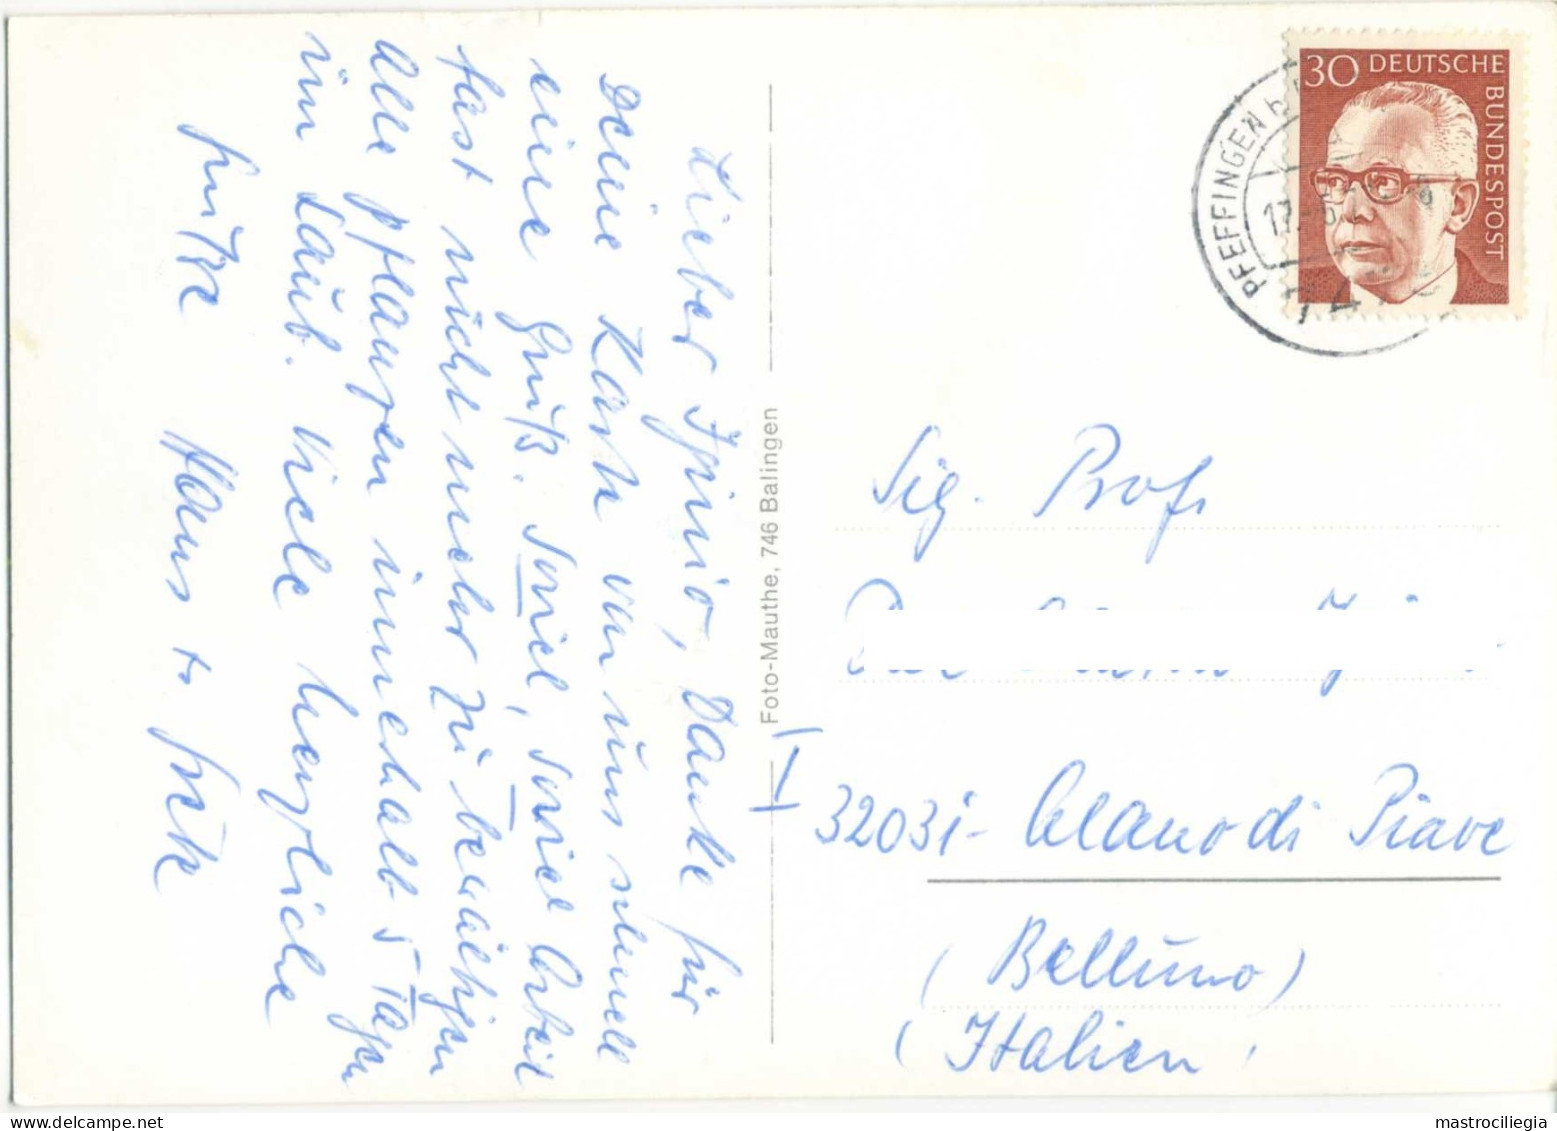 Lieber Iginio, Danke für
Deine Karte von uns schnell
einen Gruß. Soviel, soviel Arbeit
fast nicht mehr zu bewältigen
Alle pflanzen innerhalb 5 Tagen
im Laub. Viele herzliche
Grüße Hans
Foto-Mauthe, 746 Balingen
30 DEUTSCHE BUNDESPOST
PFEFFINGEN
17.
Sig. Prof.
I-
32031- Alano di Piave
(Belluno)
(Italien
mastrociliegia